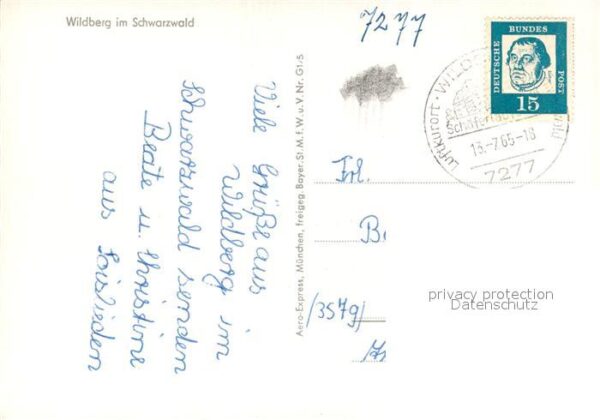 Wildberg im Schwarzwald
7277
Viele Grüße aus
Wildberg im
Schwarzwald senden
Beate u. Christine
aus
Aero-Express, München, freigeg. Bayer. St. M. F. W. u. V. Nr. G1/5
DEUTSCHE
BUNDES
POST
15
Luftkurort · WILDB
Schäferlauf
13.-7.65-18
7277
Frl.
B.
/3579/
privacy protection
Datenschutz